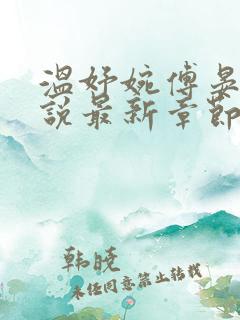 温妤婉傅晏
说最新章节
韩晓
未经同意禁止转载